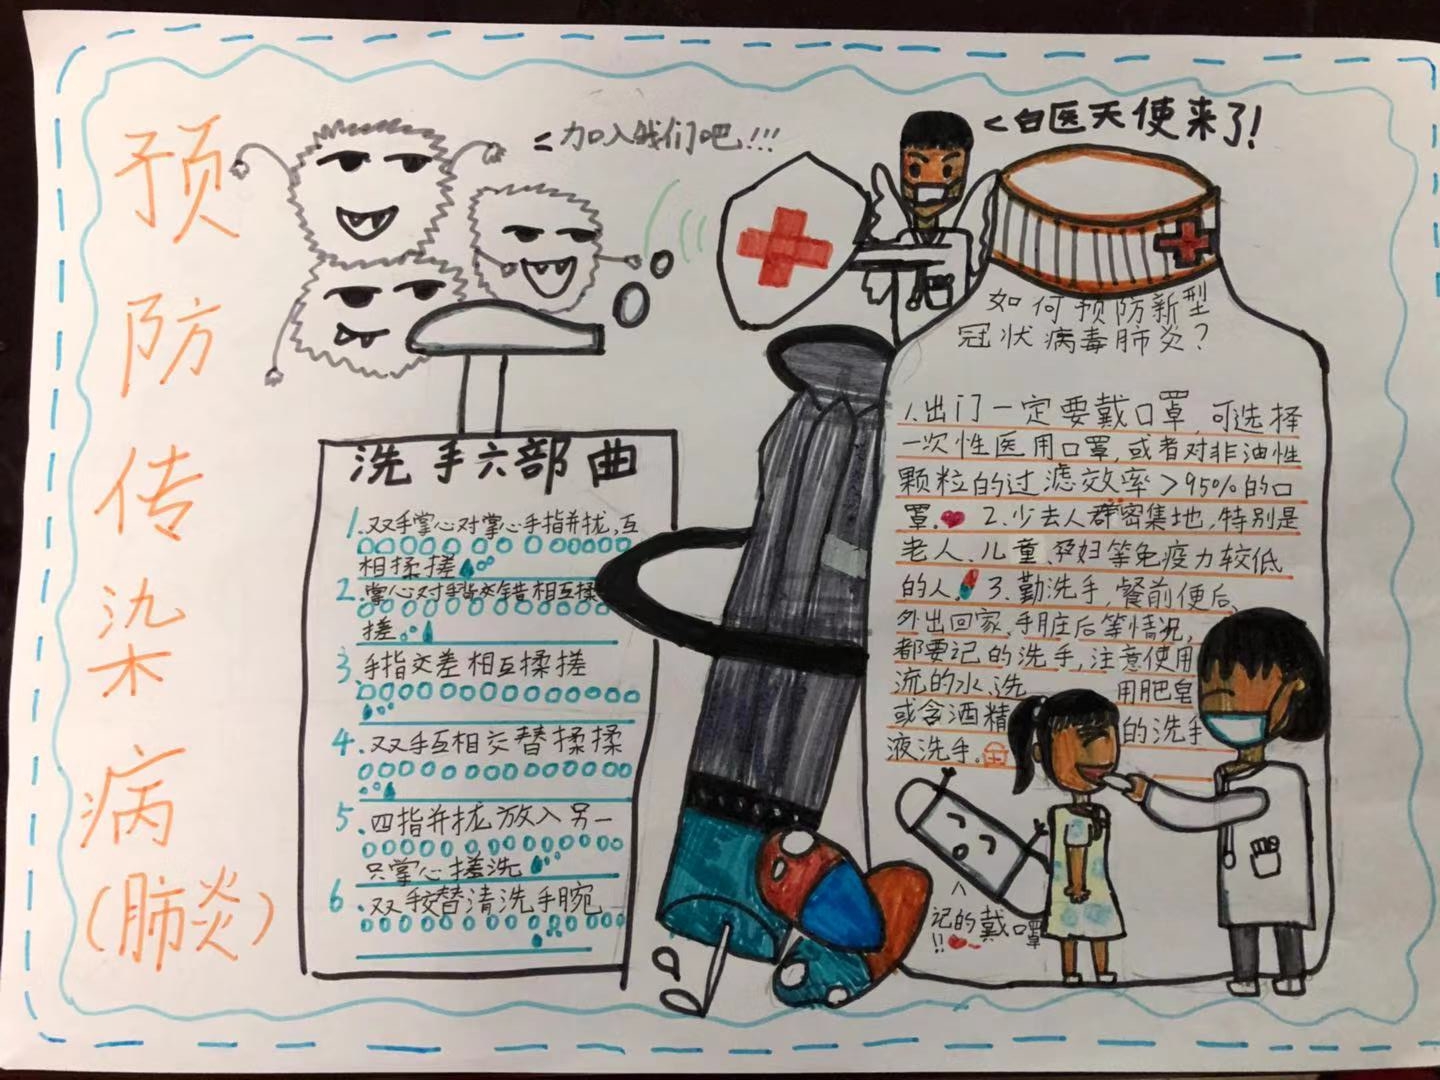 预
防
传
染
病
(肺炎)
<加入我们吧!!!
<白医天使来了!
洗手六部曲
1.双手掌心对掌心手指并拢,互
相揉搓
2.掌心对手背交错相互揉
搓。
3.手指交差相互揉搓
4.双手互相交替揉揉
5.四指并拢放入另一
只掌心搓洗
6.双手交替清洗手腕
如何预防新型
冠状病毒肺炎?
1.出门一定要戴口罩,可选择
一次性医用口罩,或者对非油性
颗粒的过滤效率>95%的口
罩。2.少去人群密集地,特别是
老人、儿童、孕妇等免疫力较低
的人。3.勤洗手,餐前便后、
外出回家、手脏后等情况,
都要记的洗手,注意使用
流的水、洗 用肥皂
或含酒精 的洗手
液洗手。
记的戴口罩
!!